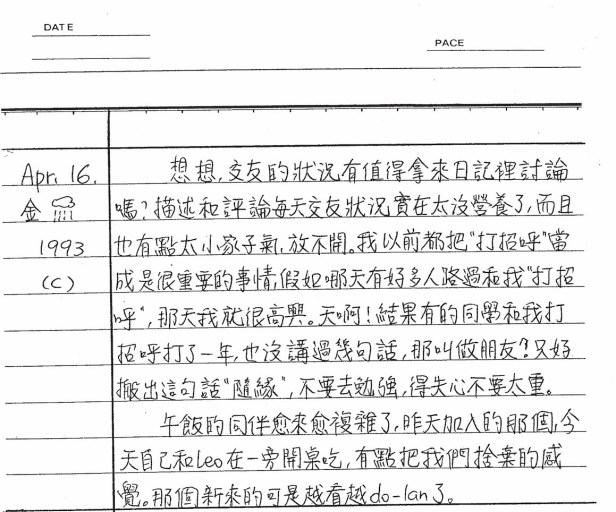 DATE
PACE
Apr. 16.
想想,交友的狀況有值得拿來日記裡討論
金
嗎?描述和評論每天交友狀況實在太沒營養了,而且
1993
也有點太小家子氣,放不開。我以前都把"打招呼"當
(C)
成是很重要的事情,假如哪天有好多人路過和我"打招
呼",那天我就很高興。天啊!結果有的同學和我打
招呼打了一年,也沒講過幾句話,那叫做朋友?只好
搬出這句話"隨緣",不要去勉強,得失心不要太重。
午飯的同伴愈來愈複雜了,昨天加入的那個,今
天自己和leo在一旁開桌吃,有點把我們捨棄的感
覺。那個新來的可是越看越do-lan了。